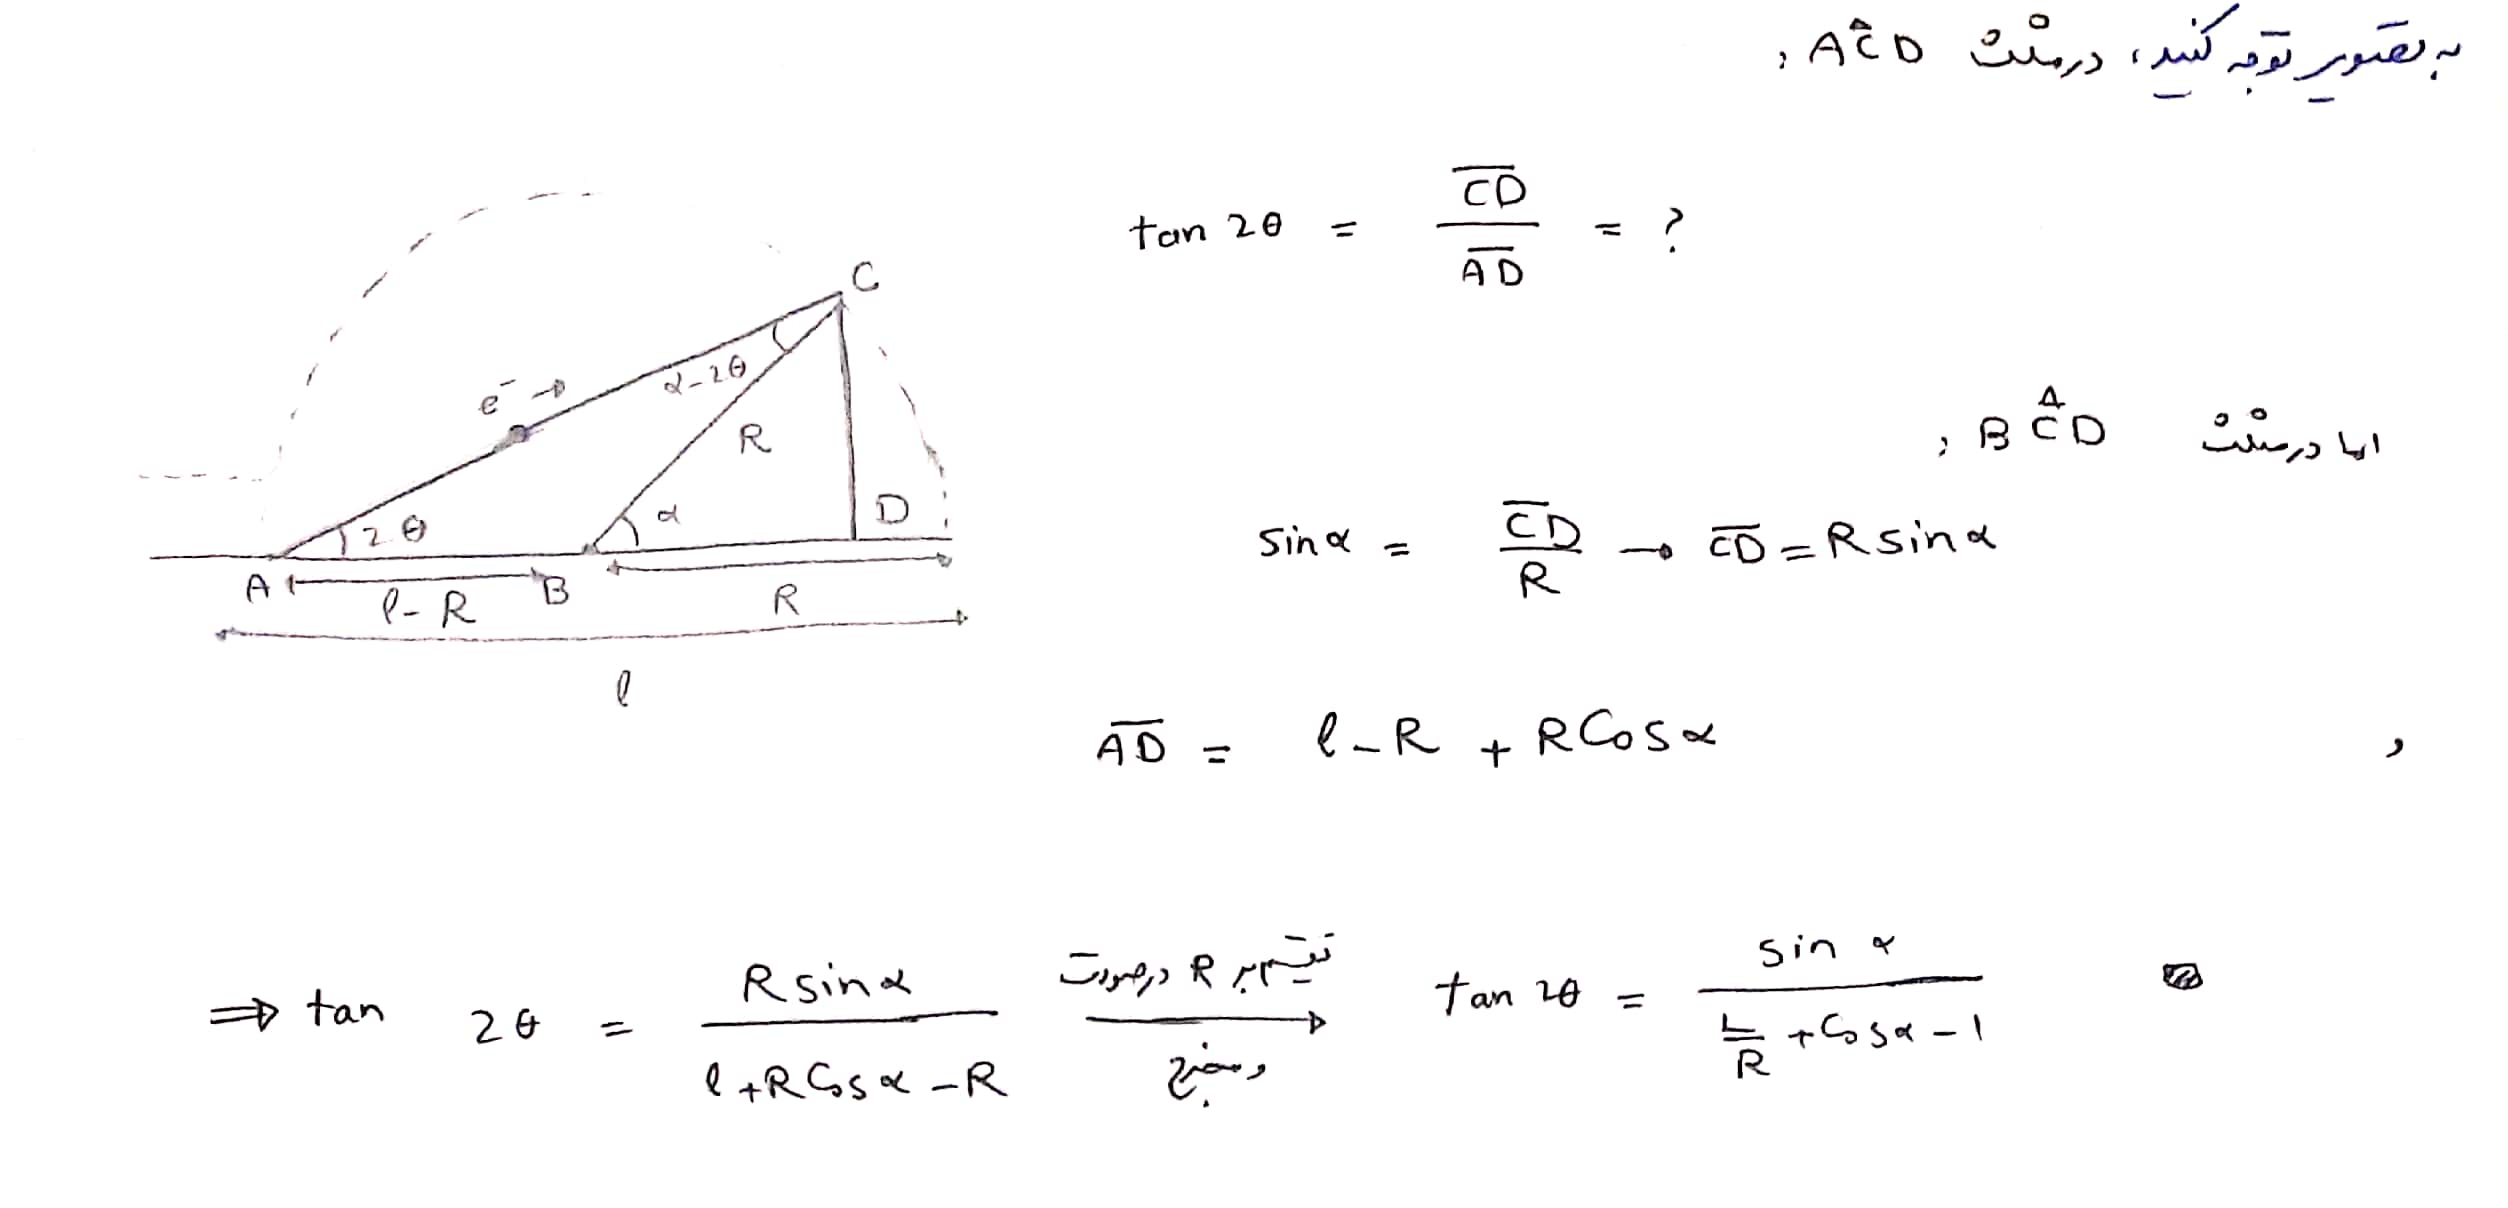 به تصویر توجه کنید، در مثلث AĈD :
tan 2θ = CD / AD = ?
C
e⁻ →
α-2θ
R
2θ
α
D
A
B
l-R
R
l
اما در مثلث BĈD :
sinα = CD / R → CD = R sinα
AD = l - R + R Cosα و
⇒ tan 2θ = R sinα / l + R Cosα - R تقسیم بر R در صورت و مخرج → tan 2θ = sin α / L/R + Cosα - 1